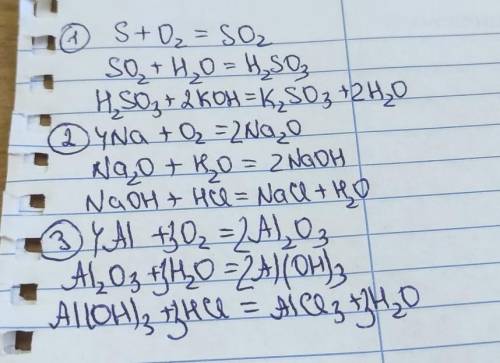 1 S + O₂ = SO₂
SO₂ + H₂O = H₂SO₃
H₂SO₃ + 2KOH = K₂SO₃ + 2H₂O
2 4Na + O₂ = 2Na₂O
Na₂O + H₂O = 2NaOH
NaOH + HCl = NaCl + H₂O
3 4Al + 3O₂ = 2Al₂O₃
Al₂O₃ + 3H₂O = 2Al(OH)₃
Al(OH)₃ + 3HCl = AlCl₃ + 3H₂O